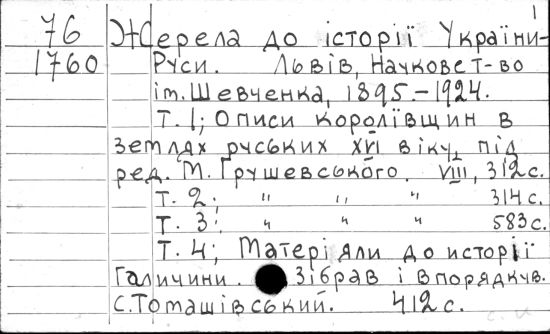 1
76 Жерела до історії України-
1760 Руси. Львів, Наукове т-во
ім. Шевченка, 1895.-1924.
Т. 1; Описи королівщин в
землях руських XVI віку, під
ред. М. Грушевського. VIII, 312с.
Т. 2; " " " 314с.
Т. 3; " " " 583с.
Т. 4; Матеріяли до исторії
Галичини. Зібрав і впорядкув.
С. Томашівський. 412с.